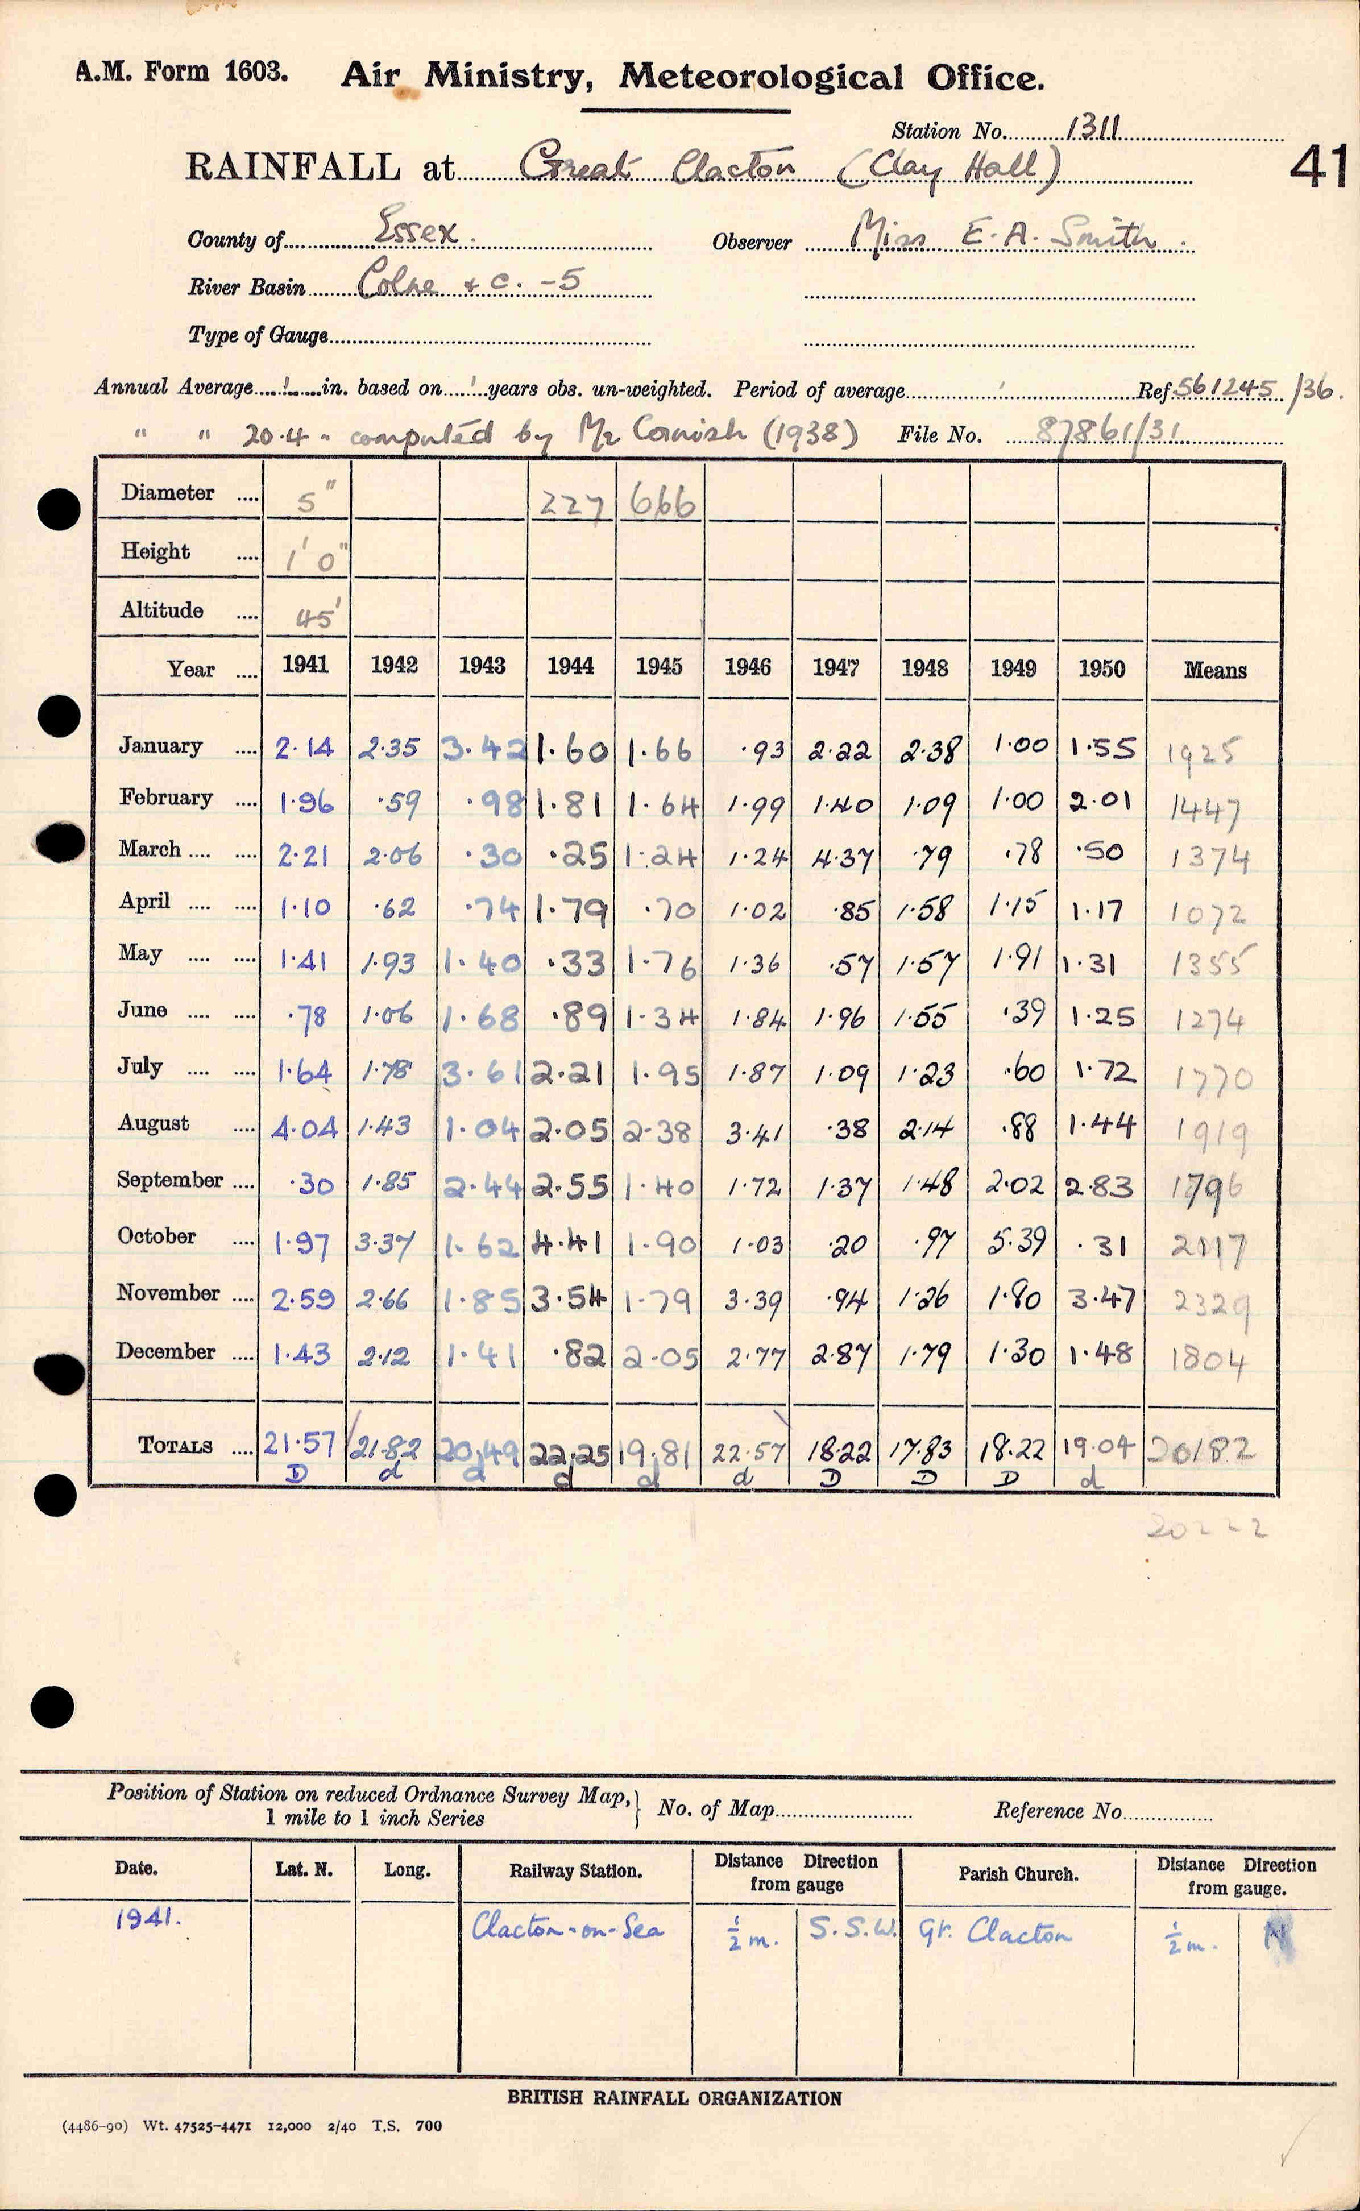 A.M. Form 1603. Air Ministry, Meteorological Office.
Station No. 1311
RAINFALL at Great Clacton (Clay Hall) 41
County of Essex. Observer Miss E. A. Smith.
River Basin Colne & c. -5
Type of Gauge
Annual Average in. based on years obs. un-weighted. Period of average Ref. 561245/36.
" " 20.4 " computed by Mr Cornish (1938) File No. 87861/31
Diameter .... 5" 227 666
Height .... 1' 0"
Altitude .... 45'
Year .... 1941 1942 1943 1944 1945 1946 1947 1948 1949 1950 Means
January .... 2.14 2.35 3.42 1.60 1.66 .93 2.22 2.38 1.00 1.55 1925
February .... 1.96 .59 .98 1.81 1.64 1.99 1.40 1.09 1.00 2.01 1447
March .... .... 2.21 2.06 .30 .25 1.24 1.24 4.37 .79 .78 .50 1374
April .... .... 1.10 .62 .74 1.79 .70 1.02 .85 1.58 1.15 1.17 1072
May .... .... 1.41 1.93 1.40 .33 1.76 1.36 .57 1.57 1.91 1.31 1355
June .... .... .78 1.06 1.68 .89 1.34 1.84 1.96 1.55 .39 1.25 1274
July .... .... 1.64 1.78 3.61 2.21 1.95 1.87 1.09 1.23 .60 1.72 1770
August .... 4.04 1.43 1.04 2.05 2.38 3.41 .38 2.14 .88 1.44 1919
September .... .30 1.85 2.44 2.55 1.40 1.72 1.37 1.48 2.02 2.83 1796
October .... 1.97 3.37 1.62 4.41 1.90 1.03 .20 .97 5.39 .31 2117
November .... 2.59 2.66 1.85 3.54 1.79 3.39 .94 1.26 1.80 3.47 2329
December .... 1.43 2.12 1.41 .82 2.05 2.77 2.87 1.79 1.30 1.48 1804
TOTALS .... 21.57 21.82 20.49 22.25 19.81 22.57 18.22 17.83 18.22 19.04 20182
D d d d d d D D D d
Position of Station on reduced Ordnance Survey Map,} No. of Map Reference No.
1 mile to 1 inch Series
Date. Lat. N. Long. Railway Station. Distance Direction from gauge Parish Church. Distance Direction from gauge.
1941. Clacton-on-Sea ½ m. S.S.W. Gt. Clacton ½ m. N
BRITISH RAINFALL ORGANIZATION
(4486-90) Wt. 47525-4471 12,000 2/40 T.S. 700